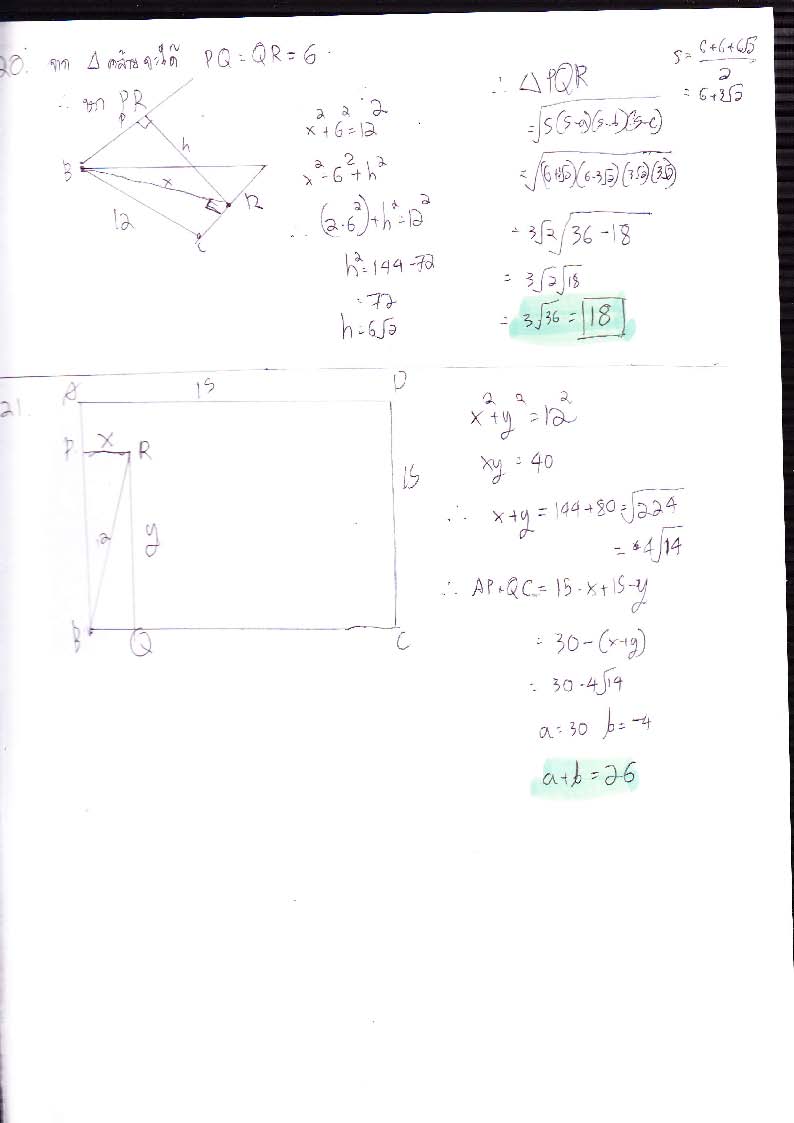 20. จาก Δ คล้ายจะได้ PQ = QR = 6
∴ หา PR
P
h
B
x
R
12
C
x² + 6² = 12²
x² = 6² + h²
∴ (2·6²) + h² = 12²
h² = 144 - 72
= 72
h = 6√2
∴ △PQR
= √S(S-a)(S-b)(S-c)
= √(6+3√2)(6-3√2)(3√2)(3√2)
= 3√2 √36 - 18
= 3√2 √18
= 3√36 = 18
S = 6+6+6√2 / 2
= 6+3√2
21.
A 15 D
P x R
15
12 y
B Q C
x² + y² = 12²
xy = 40
∴ x+y = 144+80 = √224
= 4√14
∴ AP+QC = 15-x+15-y
= 30-(x+y)
= 30-4√14
a = 30 b = -4
a+b = 26